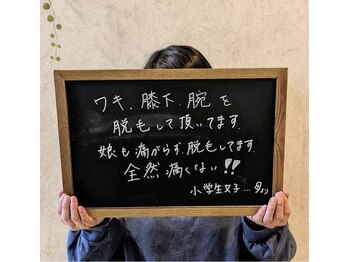 ワキ、膝下、腕を
脱毛して頂いてます。
娘も痛がらず、脱毛してます。
全然痛くない!!
小学生女子…